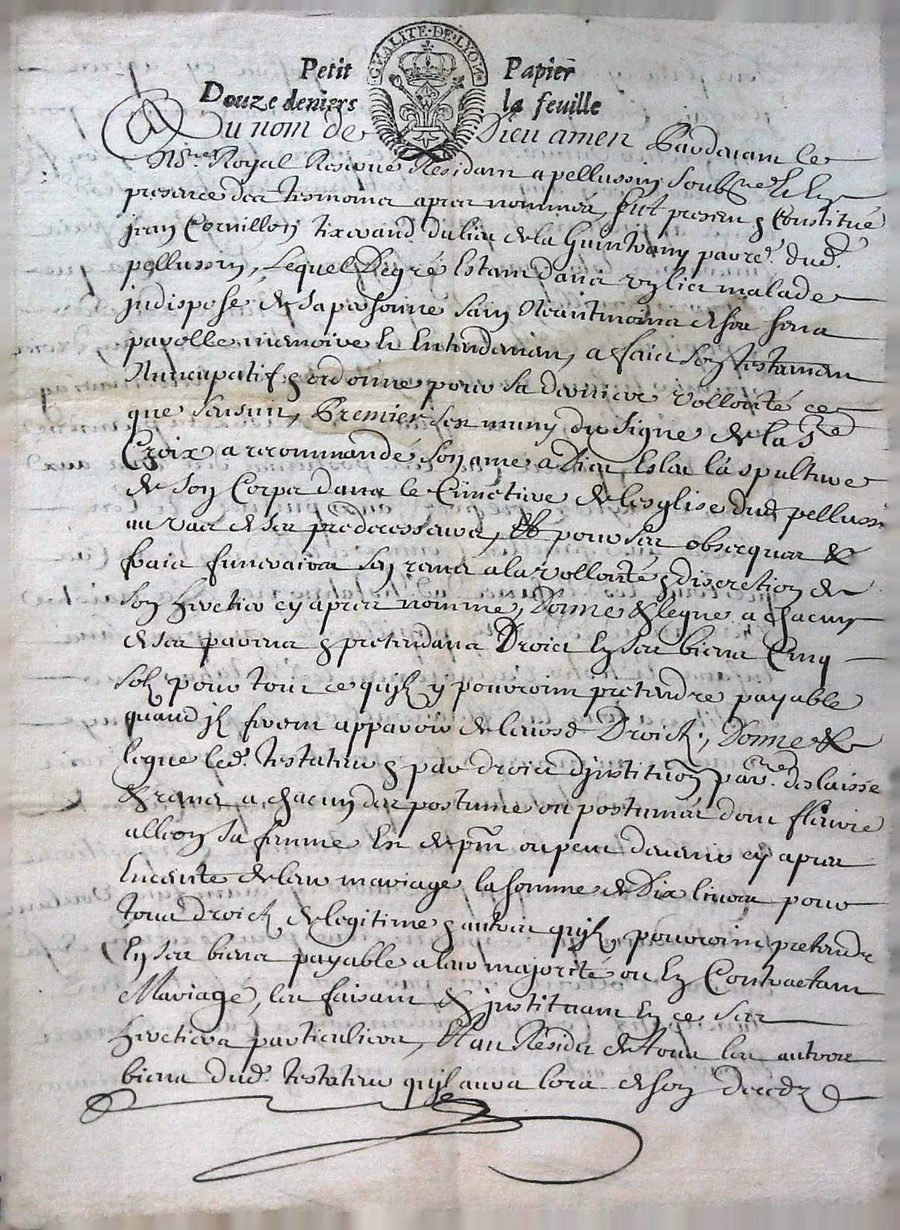 GNALITE·DE·LYON
Petit Papier
Douze deniers la feuille
Au nom de Dieu amen Pardevant le
Nore Royal Reservé Résidant a pellussin soubzné et En
presence des tesmoins apres nommés, fut presen & Constitué
jean Cornillon tixerand du lieu de la Guintrany parre. dud.
pellussin, Lequel de gré Estant dans un lict malade
jndisposé de sa personne sain Neantmoins de ses sens
parolle memoire et Entendemen, a faict son testamen
Nuncupatif & ordonne pour sa derniere vollonté ce
que sensuit, Premier sest muny du signe de la Ste
Croix a recommandé son ame a Dieu Eslu la sepulture
de son Corps dans le Cimetiere de lesglise dud. pellussin
au vas de ses predecesseurs, Et pour ses obseques &
frais funeraires sen remet a la vollonté & discretion de
son heretier cy apres nommé, Donne & legue a chacun
de ses parens & pretendans Droict En ses biens Cinq
solz pour tout ce quilz y pouroint pretendre payable
quand jlz feront apparoir de leursd. Droictz, Donne &
legue led. testateur & par droict djnstitution parre. delaisse
& remet a chacun des postume ou postumes dont fleurie
allion sa femme Est de pnt ou peut devenir cy apres
Enceinte de leur mariage la somme de Dix livres pour
tous droictz de legitime & autres quilz, pouroint pretendre
En ses biens payable a leur majorité ou En Contractant
Mariage, les faisant & jnstituant En ce ses
heretiers particuliers, Et au Residu de tous les autres
biens dud. testateur quil aura lors de son decedz